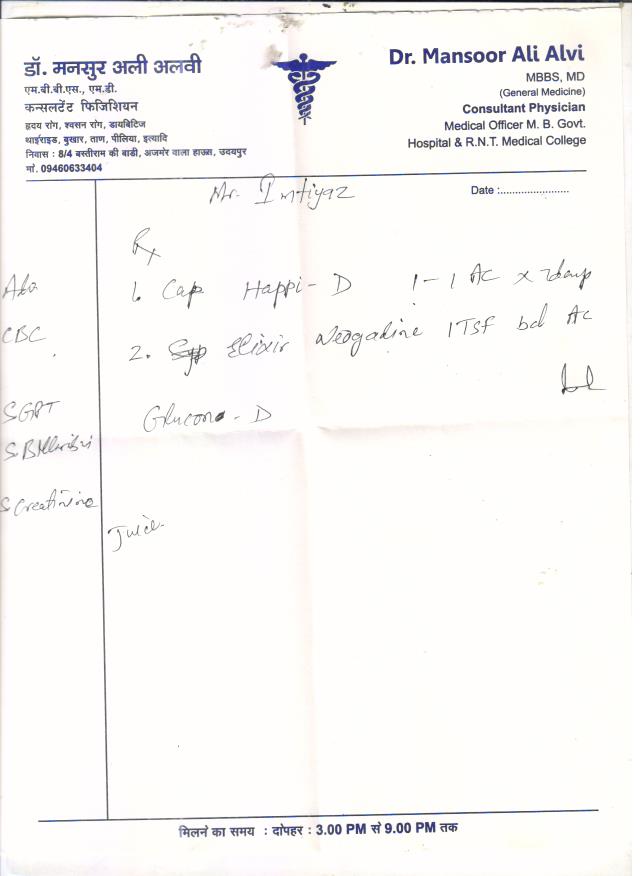 डॉ. मनसुर अली अलवी
एम.बी.बी.एस., एम.डी.
कन्सलटेंट फिजिशियन
हृदय रोग, श्वसन रोग, डायबिटिज
थाईराइड, बुखार, ताण, पीलिया, इत्यादि
निवास : 8/4 बस्तीराम की बाडी, अजमेर वाला हाऊस, उदयपुर
मो. 09460633404
Dr. Mansoor Ali Alvi
MBBS, MD
(General Medicine)
Consultant Physician
Medical Officer M. B. Govt.
Hospital & R.N.T. Medical College
Mr. Imtiyaz
Date :......................
Rx
1. Cap Happi-D 1-1 AC x 7days
2. Elixir Neogadine 1TSF bd AC
Glucon-D
Juice
CBC
SGPT
S. Bilirubin
S Creatinine
मिलने का समय : दोपहर : 3.00 PM से 9.00 PM तक